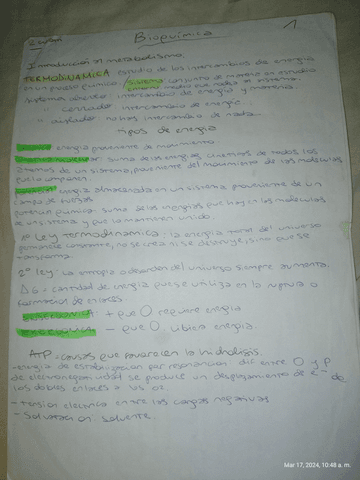 Bioquímica
1
Introducción al metabolismo.
TERMODINAMICA estudio de los intercambios de energía
en un proceso químico. Sistema conjunto de materia en estudio
entorno medio que rodea al sistema.
Sistema abierto: intercambio de energía y materia.
" cerrado: intercambio de energía.
" aislado: no hay intercambio de nada.
Tipos de energía
energía proveniente de movimiento.
suma de las energías cineticas de todos los
átomos de un sistema, proveniente del movimiento de las moleculas
que lo componen.
energía almacenada en un sistema proveniente de un
campo de fuerzas
potencial química: suma de las energías que hay en las moléculas
de un sistema y que la mantienen unido.
1º Ley termodinamica: la energía total del universo
permanece constante, no se crea ni se destruye, sino que se
transforma.
2º ley: La entropia o desorden del universo siempre aumenta.
ΔG = cantidad de energía que se utiliza en la ruptura o
formación de enlaces.
+ que 0 requiere energía
- que 0, libera energía.
ATP: causas que favorecen la hidrólisis.
- energía de estabilización por resonancia: dif entre O y P
de electronegatividad se produce un desplazamiento de e- de
los dobles enlaces a los O2.
- Tensión electrica entre las cargas negativas
- Solvatación: solvente
Mar 17, 2024, 10:48 a. m.